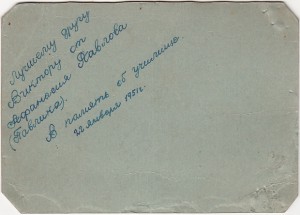 Лучшему другу
Виктору от
Афанасия Павлова
(Павлика).
В память об училище.
22 января 1951г.